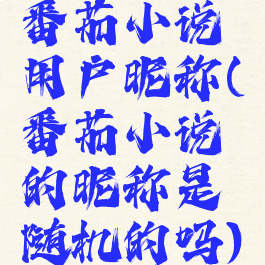 番茄小说
用户昵称(
番茄小说
的昵称是
随机的吗)